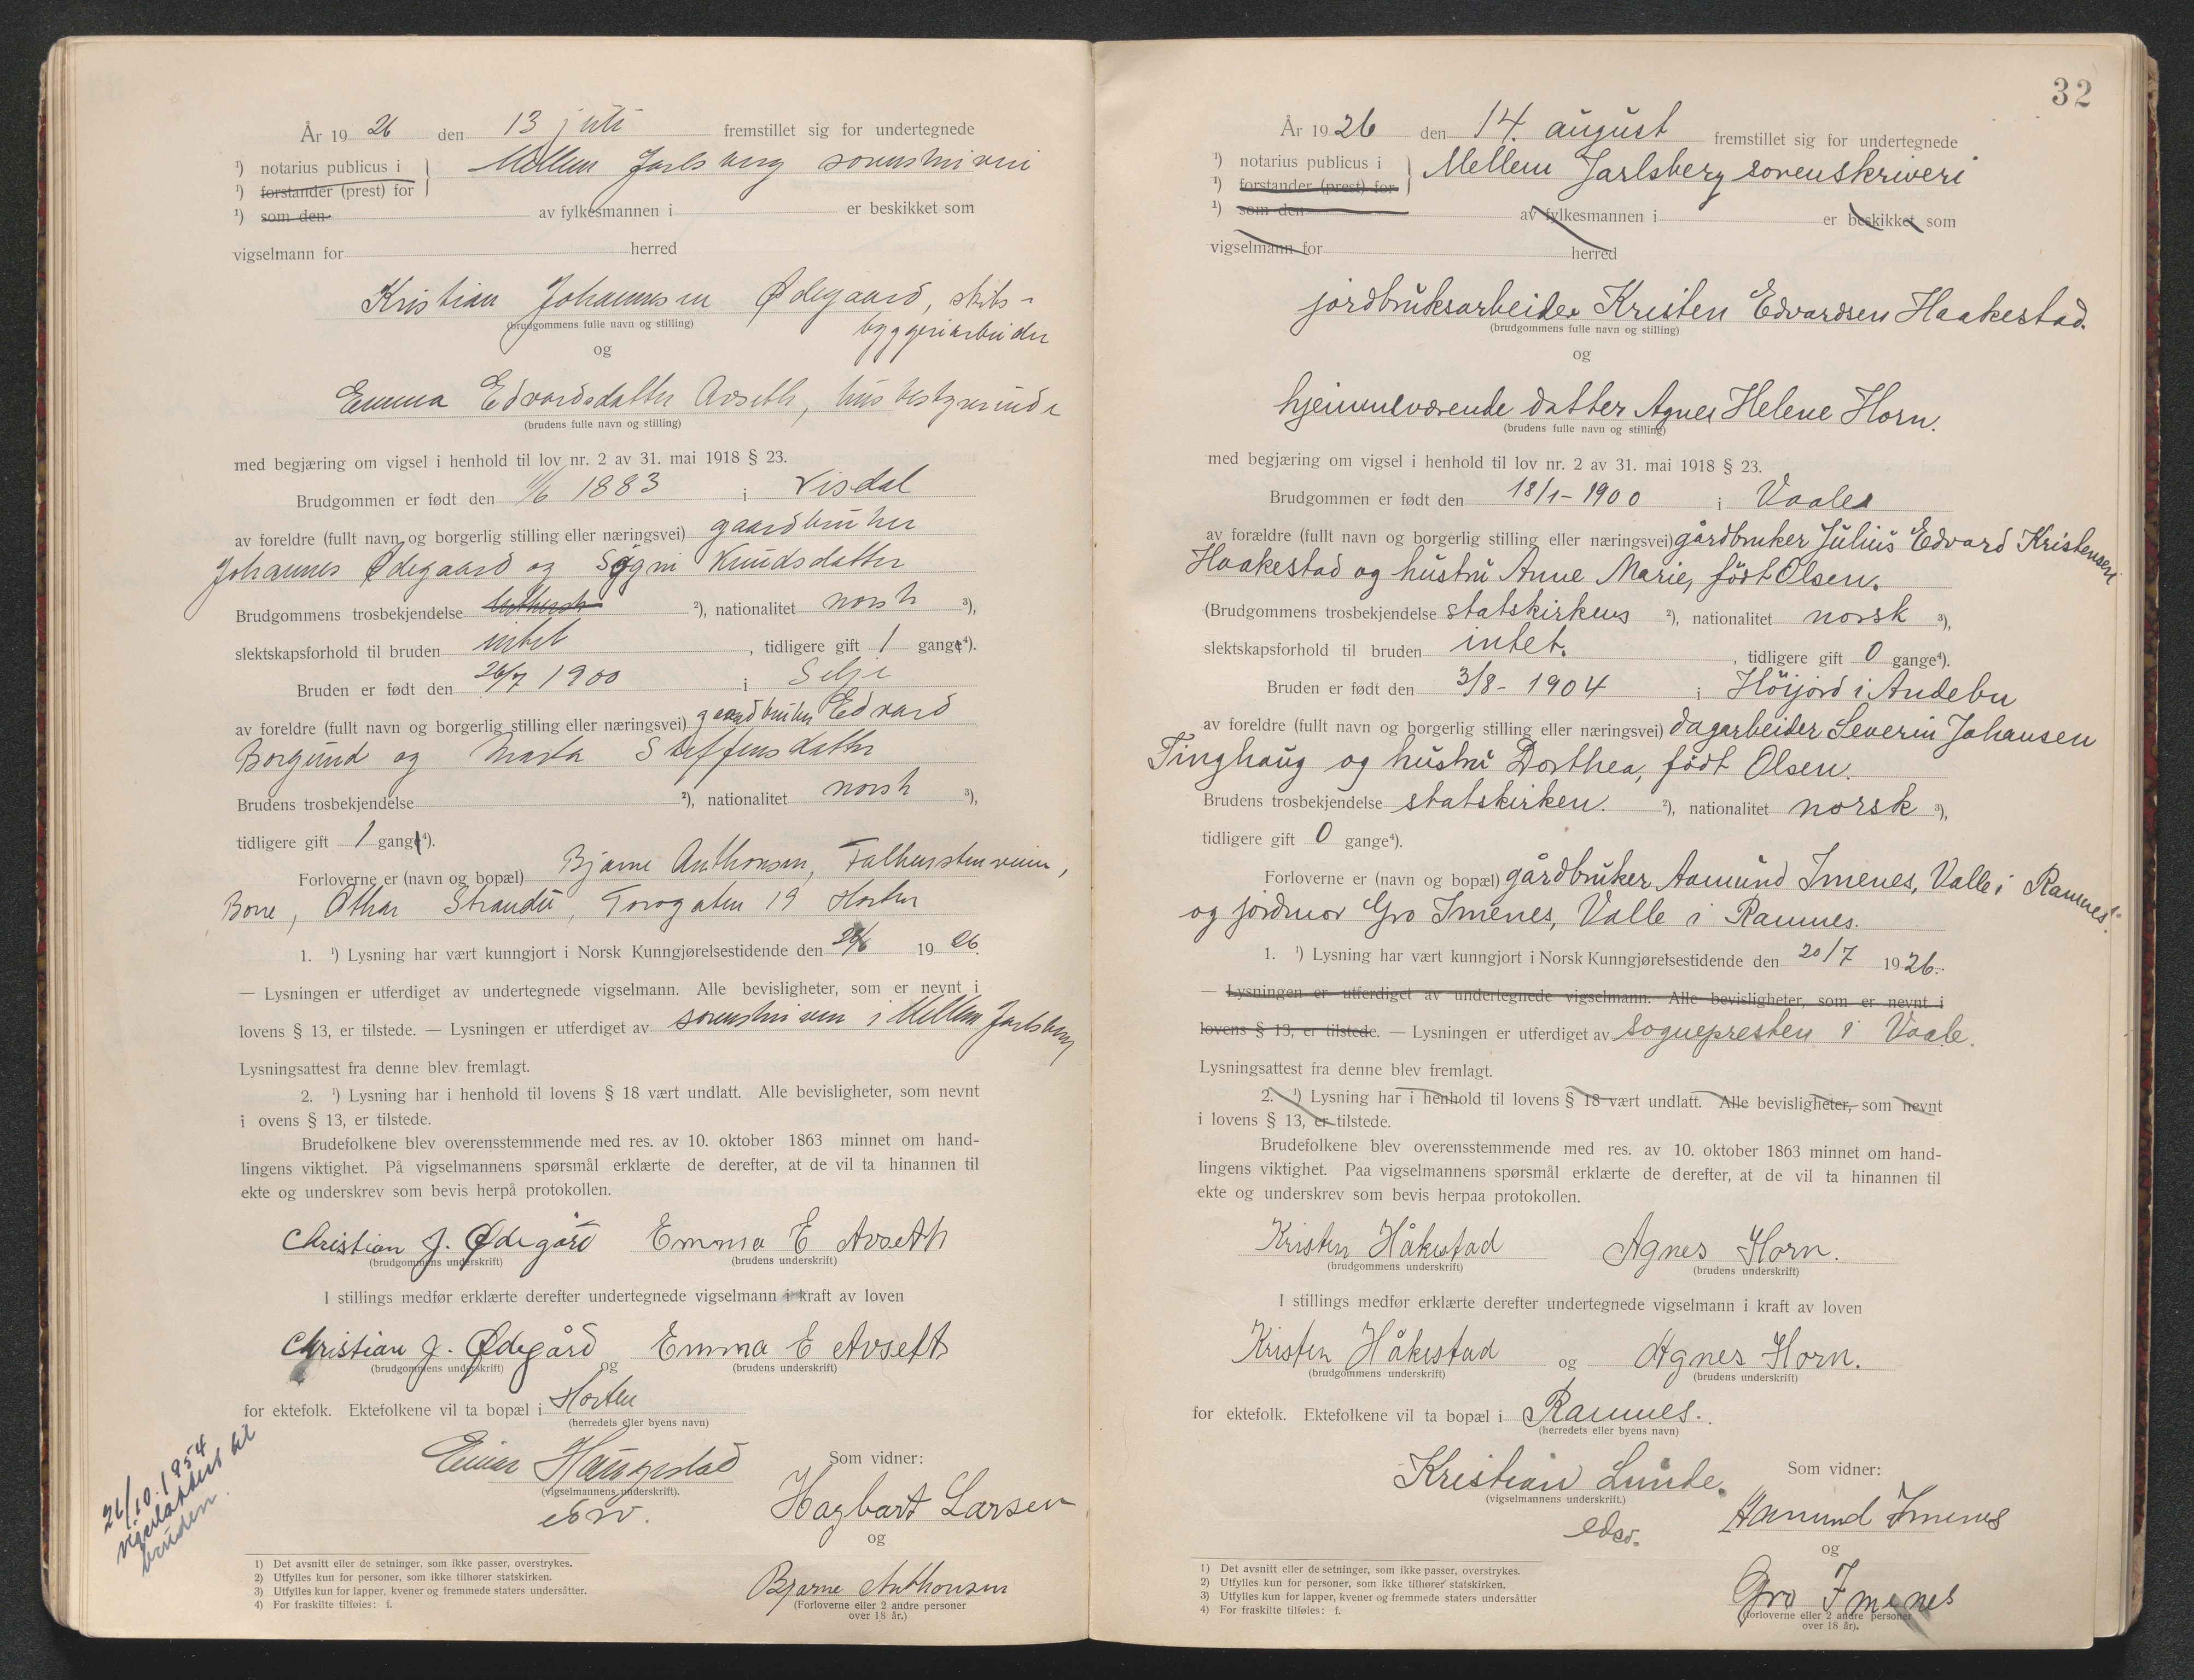 År 19 26 den 13 juli fremstillet sig for undertegnede
¹) notarius publicus i } Mellem Jarlsberg sorenskriveri
¹) forstander (prest) for
¹) som den av fylkesmannen i er beskikket som
vigselmann for herred
Kristian Johannesen Ødegaard, skibs-
(brudgommens fulle navn og stilling)
byggeriarbeider
og
Emma Edvardsdatter Avseth, husbestyrerinde
(brudens fulle navn og stilling)
med begjæring om vigsel i henhold til lov nr. 2 av 31. mai 1918 § 23.
Brudgommen er født den 11/6 1883 i Visdal
av foreldre (fullt navn og borgerlig stilling eller næringsvei) gaardbruker
Johannes Ødegaard og Søgni Knudsdatter
Brudgommens trosbekjendelse ²), nationalitet norsk ³),
slektskapsforhold til bruden intet, tidligere gift 1 gang⁴).
Bruden er født den 26/7 1900 i Selje
av foreldre (fullt navn og borgerlig stilling eller næringsvei) gaardbruker Edvard
Borgund og Marta Steffensdatter
Brudens trosbekjendelse ²), nationalitet norsk ³),
tidligere gift 1 gang⁴).
Forloverne er (navn og bopæl) Bjarne Anthonsen, Falkenstenveien,
Borre, Othar Strande, Torvgaten 19 Horten
1. ¹) Lysning har vært kunngjort i Norsk Kunngjørelsestidende den 26/6 19 26.
— Lysningen er utferdiget av undertegnede vigselmann. Alle bevisligheter, som er nevnt i
lovens § 13, er tilstede. — Lysningen er utferdiget av sorenskriveren i Mellem Jarlsberg
Lysningsattest fra denne blev fremlagt.
2. ¹) Lysning har i henhold til lovens § 18 vært undlatt. Alle bevisligheter, som nevnt
i ovens § 13, er tilstede.
Brudefolkene blev overensstemmende med res. av 10. oktober 1863 minnet om hand-
lingens viktighet. På vigselmannens spørsmål erklærte de derefter, at de vil ta hinannen til
ekte og underskrev som bevis herpå protokollen.
Christian J. Ødegård Emma E Avseth
(brudgommens underskrift) (brudens underskrift)
I stillings medfør erklærte derefter undertegnede vigselmann i kraft av loven
Christian J. Ødegård og Emma E Avseth
(brudgommens underskrift) (brudens underskrift)
for ektefolk. Ektefolkene vil ta bopæl i Horten
(herredets eller byens navn)
Einar Haugestad Som vidner:
(vigselmannens underskrift).
Hagbart Larsen
og
Bjarne Anthonsen
(Forloverne eller 2 andre personer
over 18 år.)
26/10.1954
vigselattest til
bruden.
1) Det avsnitt eller de setninger, som ikke passer, overstrykes.
2) Utfylles kun for personer, som ikke tilhører statskirken.
3) Utfylles kun for lapper, kvener og fremmede staters undersåtter.
4) For fraskilte tilføies: f.
32
År 19 26 den 14. august fremstillet sig for undertegnede
¹) notarius publicus i } Mellem Jarlsberg sorenskriveri
¹) forstander (prest) for
¹) som den av fylkesmannen i er beskikket som
vigselmann for herred
jordbruksarbeider Kristen Edvardsen Haakestad.
(brudgommens fulle navn og stilling)
og
hjemmeværende datter Agnes Helene Horn.
(brudens fulle navn og stilling)
med begjæring om vigsel i henhold til lov nr. 2 av 31. mai 1918 § 23.
Brudgommen er født den 18/1-1900 i Vaale
av forældre (fullt navn og borgerlig stilling eller næringsvei) gårdbruker Julius Edvard Kristensen
Haakestad og hustru Anne Marie, født Olsen.
(Brudgommens trosbekjendelse statskirkens ²), nationalitet norsk ³),
slektskapsforhold til bruden intet., tidligere gift 0 gange⁴).
Bruden er født den 3/8-1904 i Höijord i Andebu
av foreldre (fullt navn og borgerlig stilling eller næringsvei) dagarbeider Severin Johansen
Tinghaug og hustru Dorthea, født Olsen.
Brudens trosbekjendelse statskirken. ²), nationalitet norsk ³),
tidligere gift 0 gange⁴).
Forloverne er (navn og bopæl) gårdbruker Aamund Imenes, Valle i Ramnes
og jordmor Gro Imenes, Valle i Ramnes.
1. ¹) Lysning har vært kunngjort i Norsk Kunngjørelsestidende den 20/7 1926.
— Lysningen er utferdiget av undertegnede vigselmann. Alle bevisligheter, som er nevnt i
lovens § 13, er tilstede. — Lysningen er utferdiget av Sognepresten i Vaale.
Lysningsattest fra denne blev fremlagt.
2. ¹) Lysning har i henhold til lovens § 18 vært undlatt. Alle bevisligheter, som nevnt
i lovens § 13, er tilstede.
Brudefolkene blev overensstemmende med res. av 10. oktober 1863 minnet om hand-
lingens viktighet. Paa vigselmannens spørsmål erklærte de derefter, at de vil ta hinannen til
ekte og underskrev som bevis herpaa protokollen.
Kristen Håkestad Agnes Horn.
(brudgommens underskrift) (brudens underskrift)
I stillings medfør erklærte derefter undertegnede vigselmann i kraft av loven
Kristen Håkestad og Agnes Horn.
(brudgommens underskrift) (brudens underskrift)
for ektefolk. Ektefolkene vil ta bopæl i Ramnes.
(herredets eller byens navn)
Kristian Lunde. Som vidner:
(vigselmannens underskrift.)
edsv. Aamund Imenes
og
Gro Imenes
(forloverne eller 2 andre personer
over 18 år).
1) Det avsnitt eller de setninger, som ikke passer, overstrykes.
2) Utfylles kun for personer, som ikke tilhører statskirken.
3) Utfylles kun for lapper, kvener og fremmede staters undersåtter
4) For fraskilte tilføies: f.